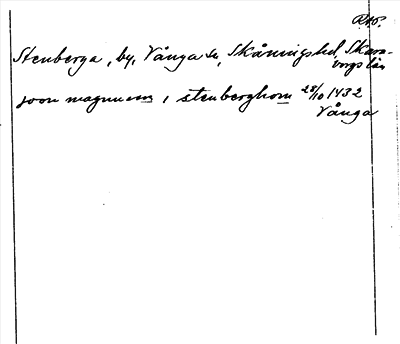 RAp.
Stenberga, by, Vånga sn, Skånings hd, Skara-
borgs län
joon magnusson i stenberghom 28/10 1432
Vånga